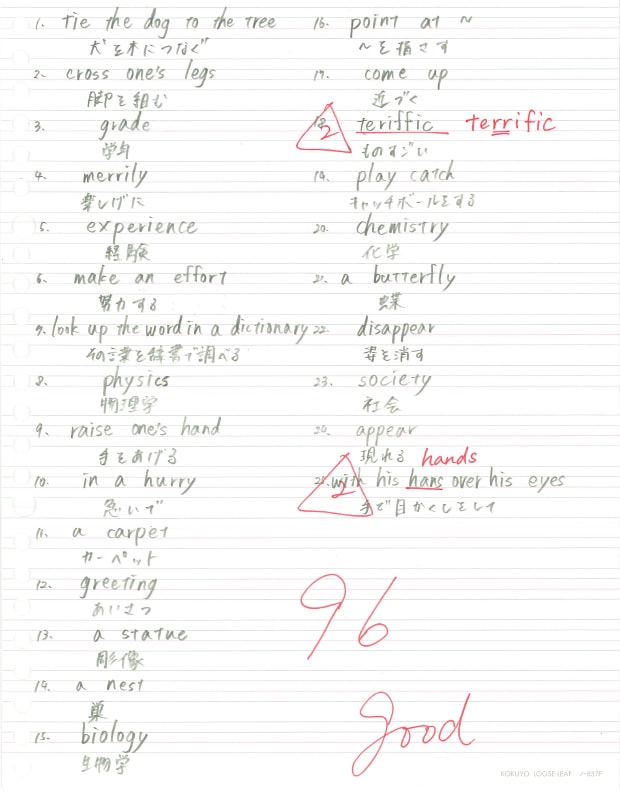 1. tie the dog to the tree
犬を木につなぐ
2. cross one's legs
脚を組む
3. grade
学年
4. merrily
楽しげに
5. experience
経験
6. make an effort
努力する
7. look up the word in a dictionary
その言葉を辞書で調べる
8. physics
物理学
9. raise one's hand
手をあげる
10. in a hurry
急いで
11. a carpet
カーペット
12. greeting
あいさつ
13. a statue
彫像
14. a nest
巣
15. biology
生物学
16. point at ~
~を指さす
17. come up
近づく
18. teriffic terrific
2
ものすごい
19. play catch
キャッチボールをする
20. chemistry
化学
21. a butterfly
蝶
22. disappear
姿を消す
23. society
社会
24. appear
現れる hands
25. with his hans over his eyes
2
手で目かくしをして
96
good
KOKUYO LOOSE-LEAF ノ-837F